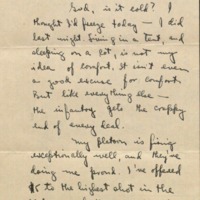 Gosh, is it cold? I
thought I'd freeze today — I did
last night. Living in a tent, and
sleeping on a cot, is not my
idea of comfort. It isn't even
a good excuse for comfort.
But like everything else —
the infantry gets the crappy
end of every deal.
My platoon is firing
exceptionally well, and they're
doing me proud. I've offered
$5 to the highest shot in the